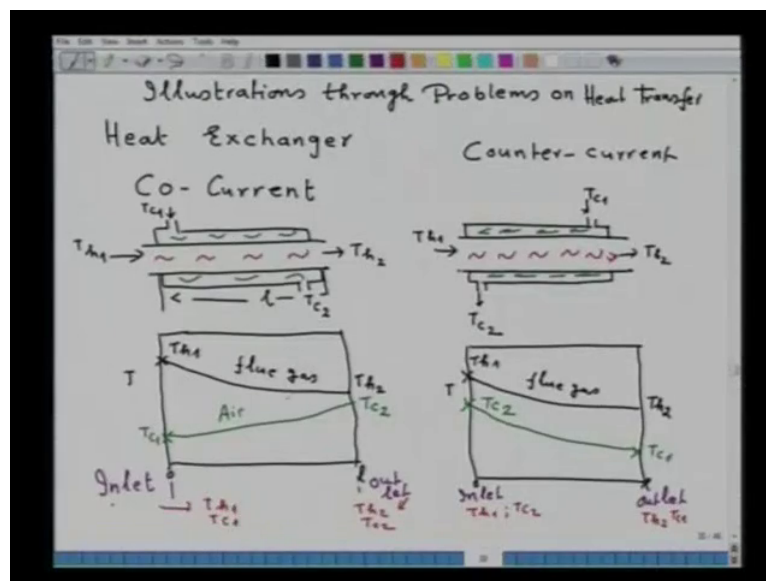 File Edit View Insert Actions Tools Help
Illustrations through Problems on Heat Transfer
Heat Exchanger
Co-Current
Tc1
Th1
Th2
l
Tc2
Th1
T
flue gas
Th2
Air
Tc2
Tc1
o
l
Inlet
outlet
Th1
Tc1
Th2
Tc2
Counter-current
Tc1
Th1
Th2
Tc2
Th1
T
flue gas
Tc2
Th2
Tc1
Inlet
outlet
Th1; Tc2
Th2 Tc1